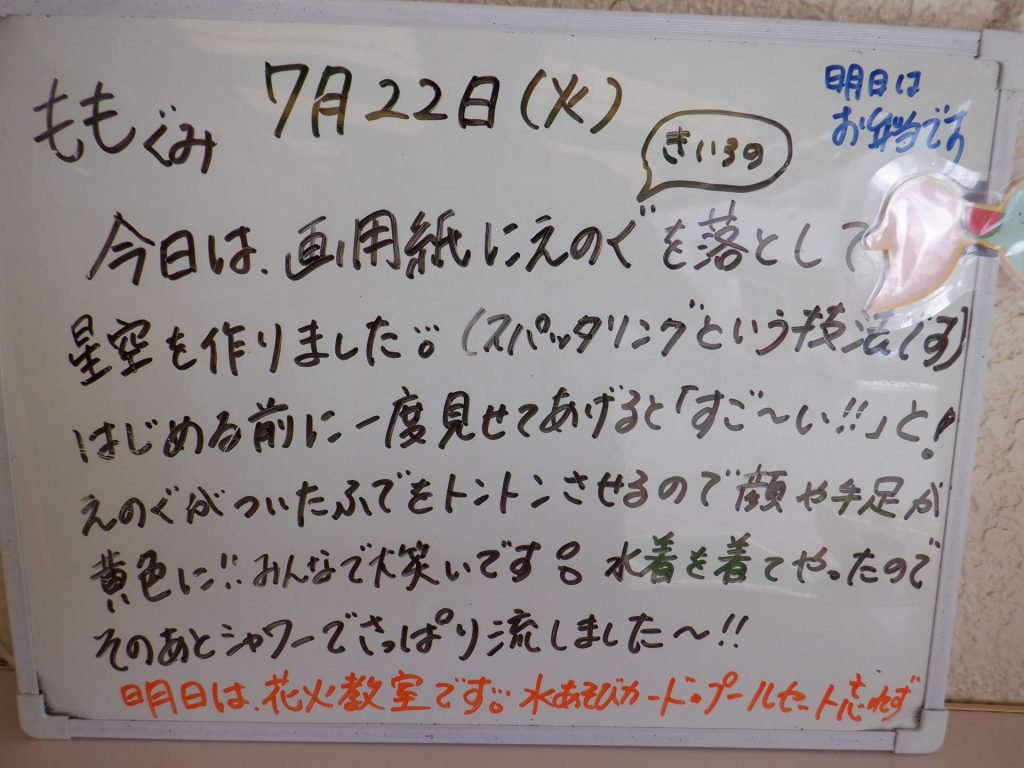 ももぐみ 7月22日(火)
明日は
お弁当です
きいろの
今日は、画用紙にえのぐを落として
星空を作りました。(スパッタリングという技法です)
はじめる前に一度見せてあげると「すご〜い!!」と!
えのぐがついたふでをトントンさせるので顔や手足が
黄色に!!みんなで大笑いです。水着を着てやったので
そのあとシャワーでさっぱり流しました〜!!
明日は、花火教室です。水あそびカード・プールセットを忘れず